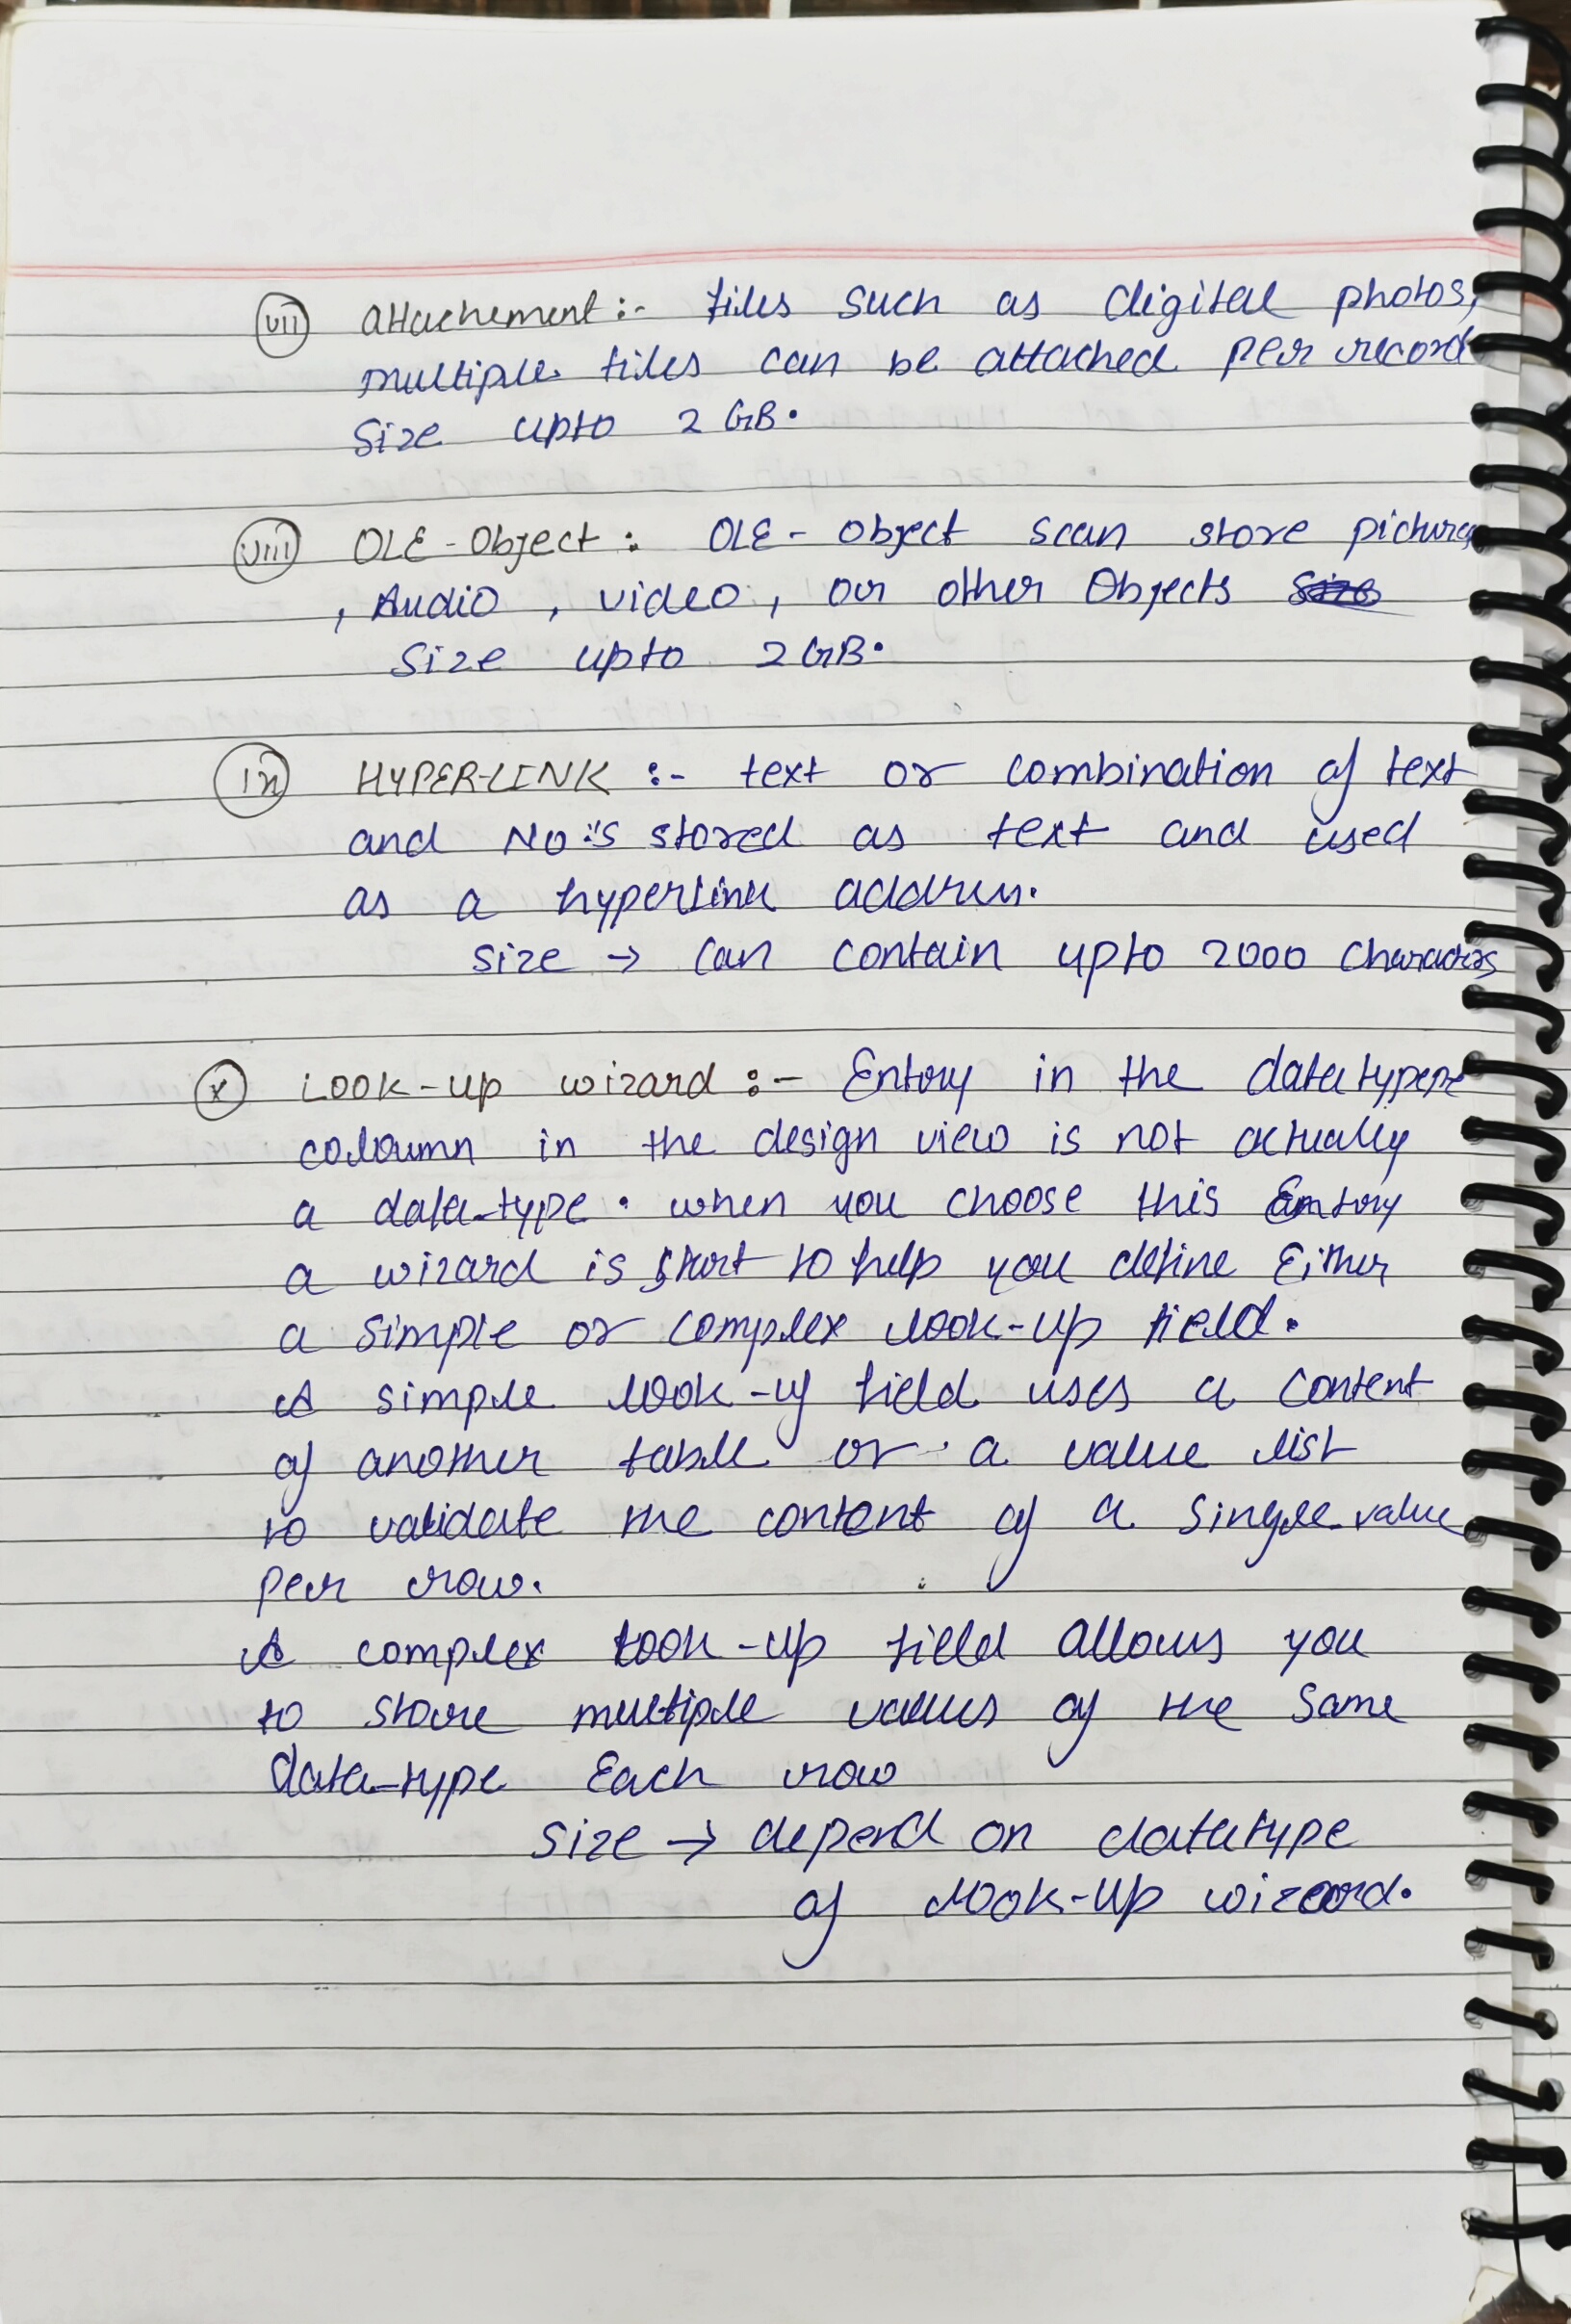 (vii) Attachement :- files such as digital photos,
multiple files can be attached per record
Size upto 2 GB.
(viii) OLE-Object : OLE-Object scan store pictures
, Audio , video , or other Objects
Size upto 2 GB.
(ix) HYPER-LINK :- text or combination of text
and No:'s stored as text and used
as a hyperlink address.
Size → Can contain upto 2000 characters
(x) Look-up wizard :- Entry in the datatype
coloumn in the design view is not actually
a data-type. when you choose this Entry
a wizard is start to help you define Either
a simple or complex look-up field.
A simple look-up field uses a content
of another table or a value list
to validate the content of a single value
per row.
A complex look-up field allows you
to store multiple values of the same
data-type Each row
Size → depend on datatype
of look-up wizard.